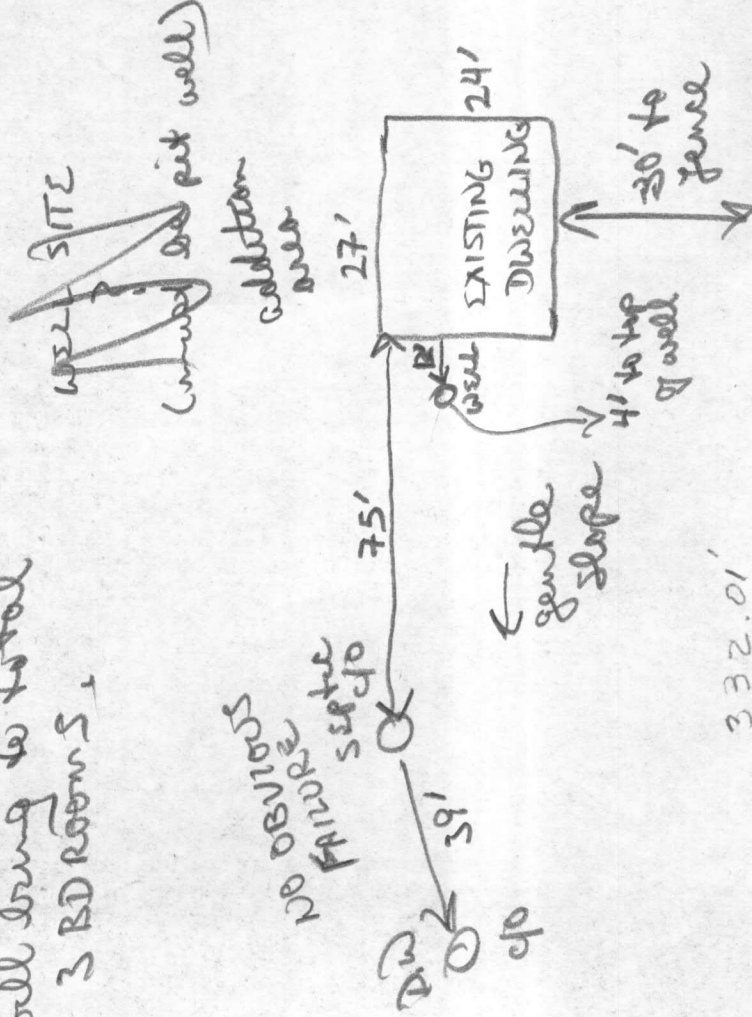 will bring to total
3 BDROOMS.
WELL SITE
pit well)
addition
area
27'
24'
EXISTING
DWELLING
30' to
fence
WELL
4' to top
of well
75'
gentle
slope
NO OBVIOUS
FAILURE
septic
c/o
39'
DW
c/o
332.01'